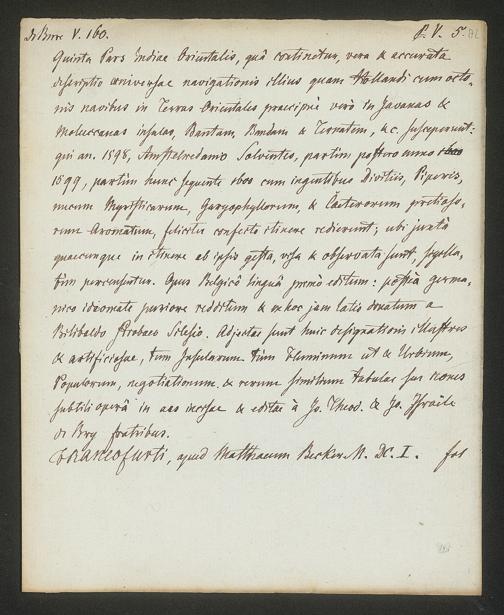 de Bure V. 160. P. V. 5.
Quinta Pars Indiae Orientalis, quâ continetur, vera & accurata
descriptio universae navigationis illius quam Hollandi cum octo-
nis navibus in Terras Orientales praecipuè verò in Javanas &
Moluccanas insulas, Bantam, Bandam & Ternatem, &c. susceperunt:
qui an. 1598, Amstelredamo Solventes, partim postero anno
1599, partim hunc sequente 1600 cum ingentibus Divitiis, Piperis,
nucum Myristicarum, Garyophyllorum, & Caeterorum pretioso-
rum Aromatum, feliciter confecto itinere redierunt; ubi juxtà
quaecunque in itinere ab ipsis gesta, visa & observata sunt, sigilla-
tim percensentur. Opus Belgicâ linguâ primò editum: posteà germa-
nico idiomate puriore redditum & ex hoc jam latio donatum a
Bilibaldo Strobaeo Silesio. Adjectae sunt huic designationis illustres
& artificiosae, tùm Insularum tùm Fluminum ut & Urbium,
Populorum, negotiationum & rerum similium tabulae seu icones
subtili operâ in aes incisae & editae à Jo. Theod. & Jo. Israele
de Bry fratribus.
Francofurti, apud Matthaeum Becker. M. DC. I. fol